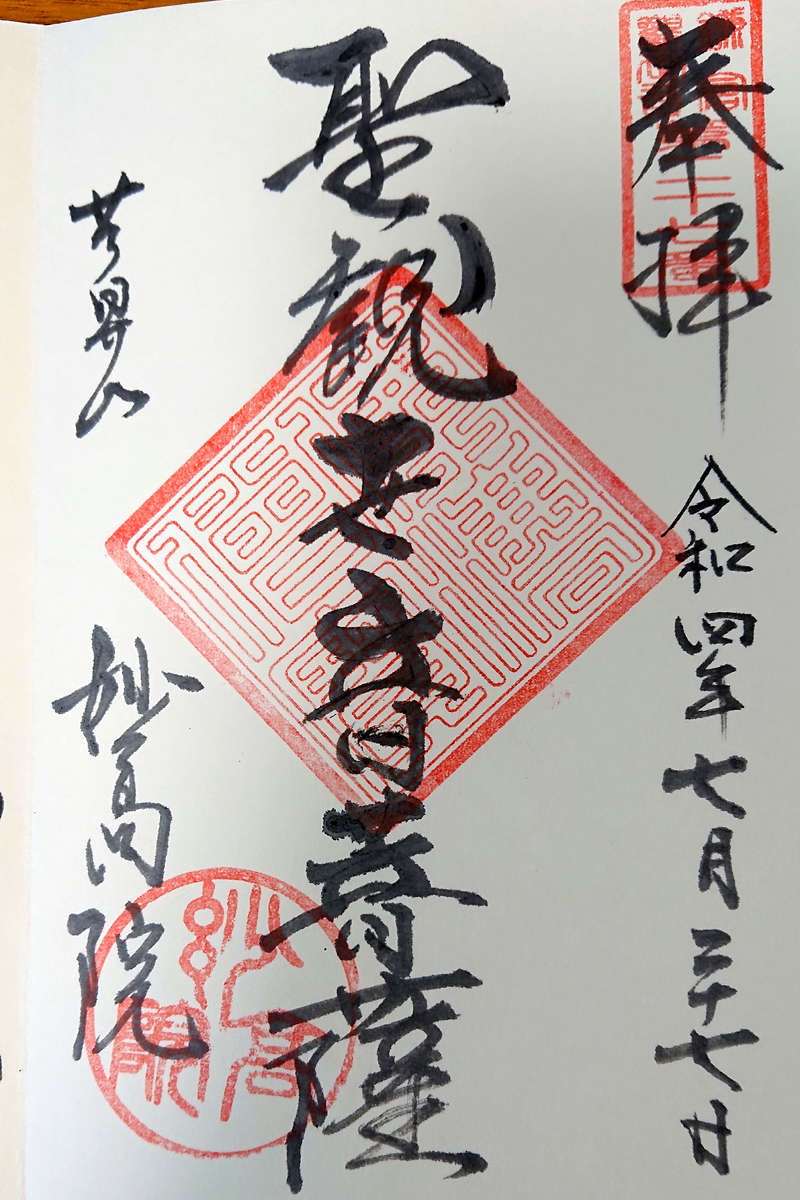 奉拝
令和四年七月二十七日
聖観世音菩薩
若昇山
妙高院
妙高院